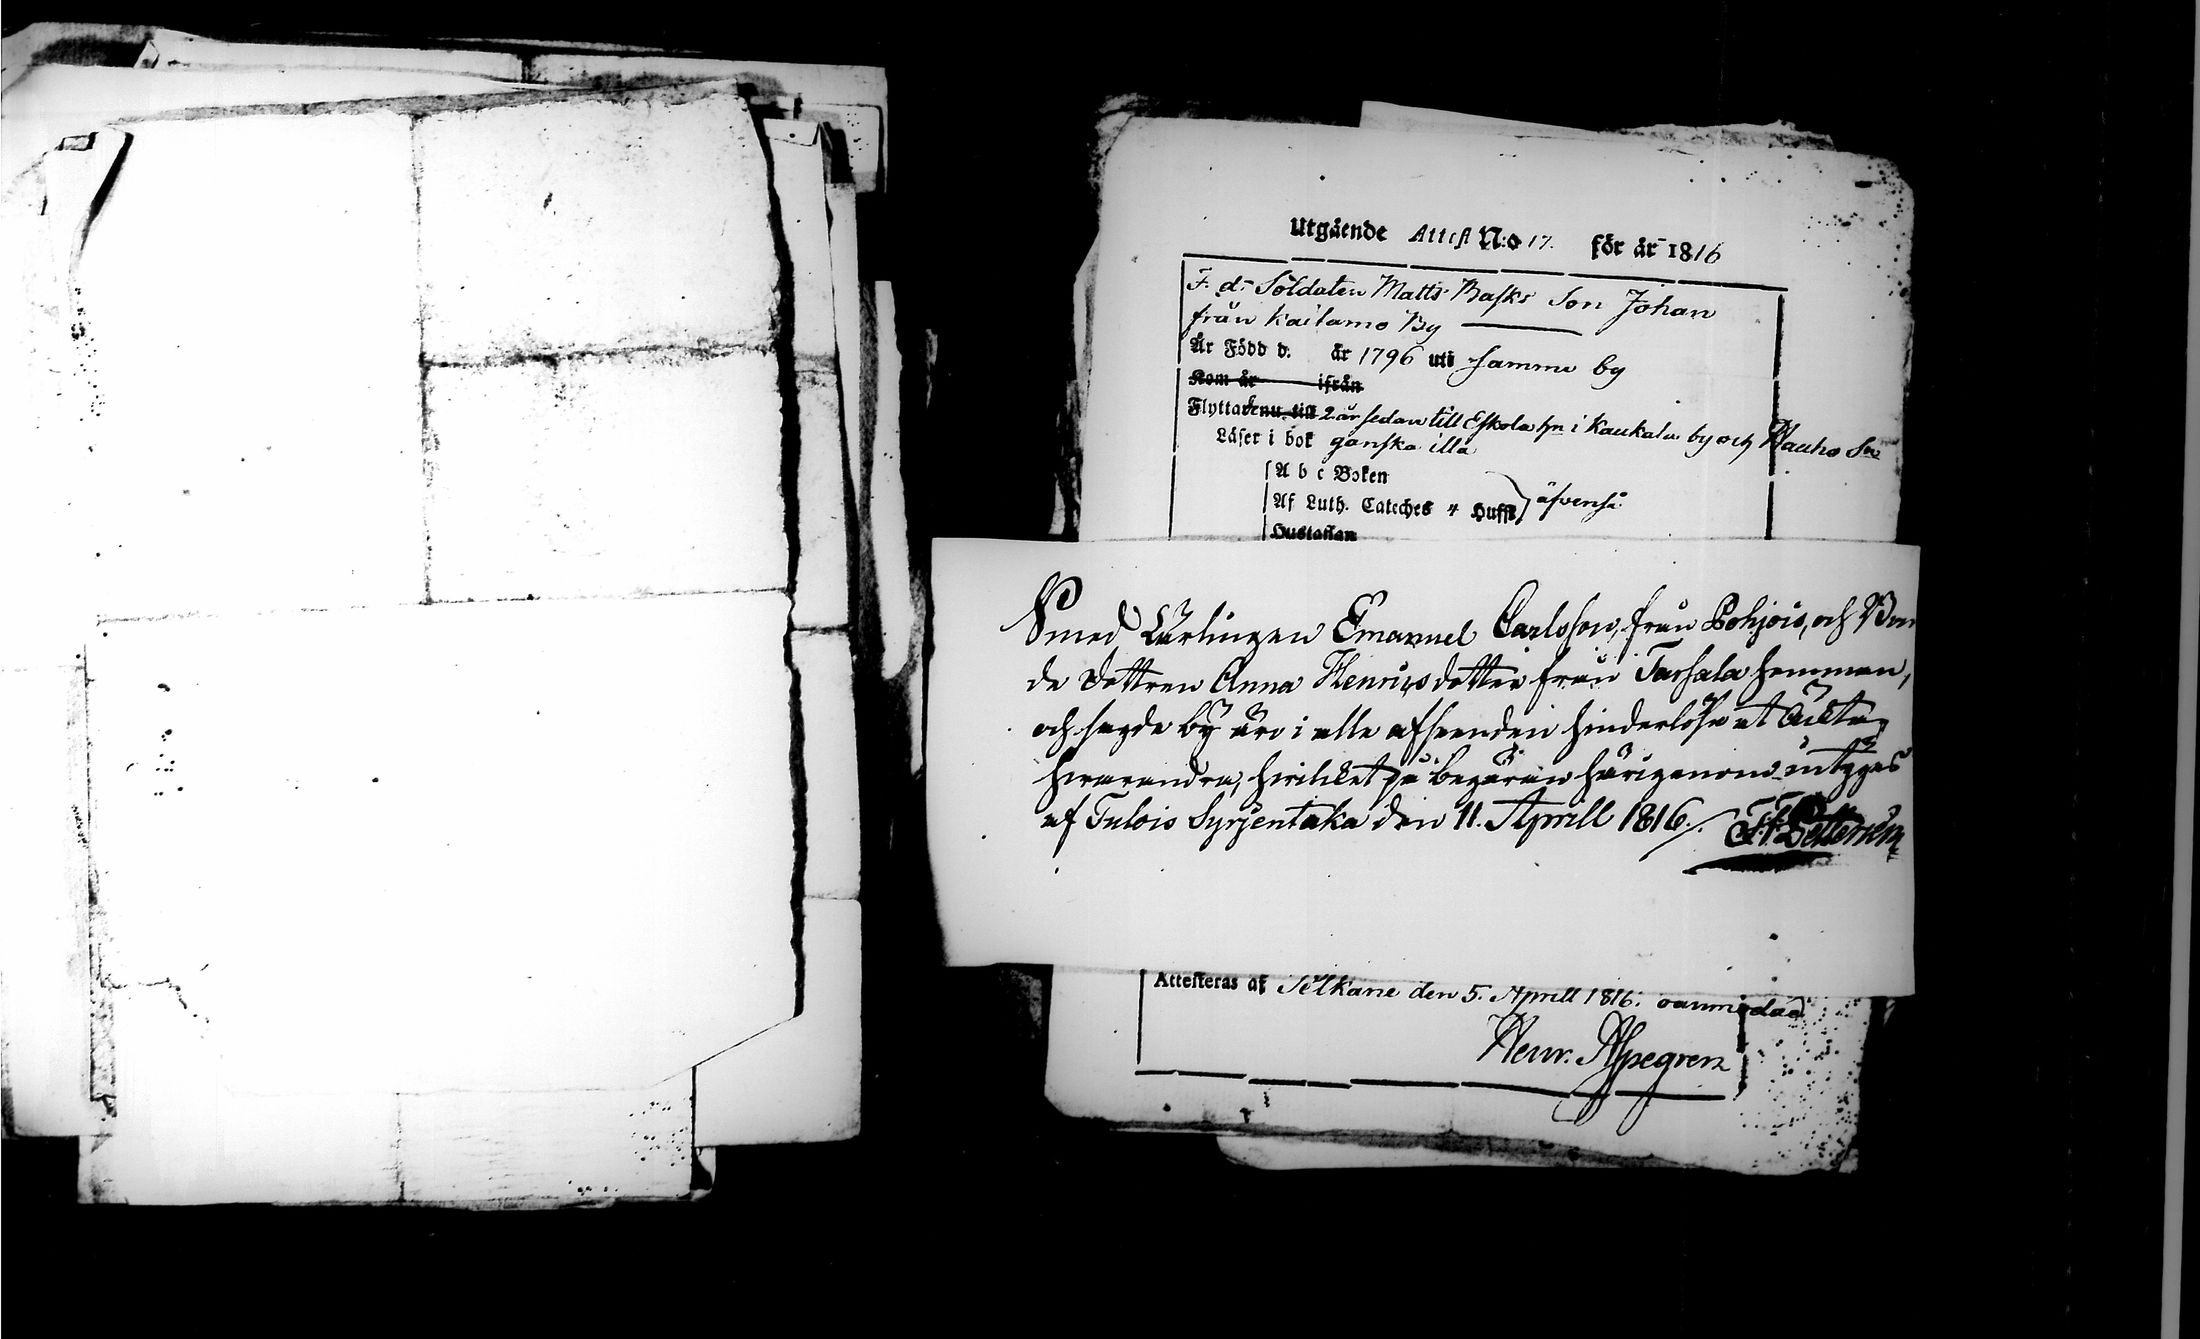 Utgående Attest N:o 17. för år 1816
F. d. Soldaten Matts Basks Son Johan
från Kailamo By
År Född d. år 1796 uti samma by
Kom år ifrån
Flyttade nu till 2 år sedan till Eskola hn i Kaukala by och Hauho Sn
Läser i bok ganska illa
A b c Boken
Af Luth. Cateches 4 Hufst. äfvenså
Hustaflan
Smed Lärlingen Emanuel Carlsson, från Pohjois, och Bon
de dottren Anna Henricsdotter från Tarsala hemman,
och sagde by äro i alla afseenden hinderlöse at äckta
hvarandra, hvilcket på begäran härigenom intygas
af Tulois Syrjentaka den 11. Aprill 1816.
Attesteras af Selkäne den 5. Aprill 1816.
Henr. Aspegren